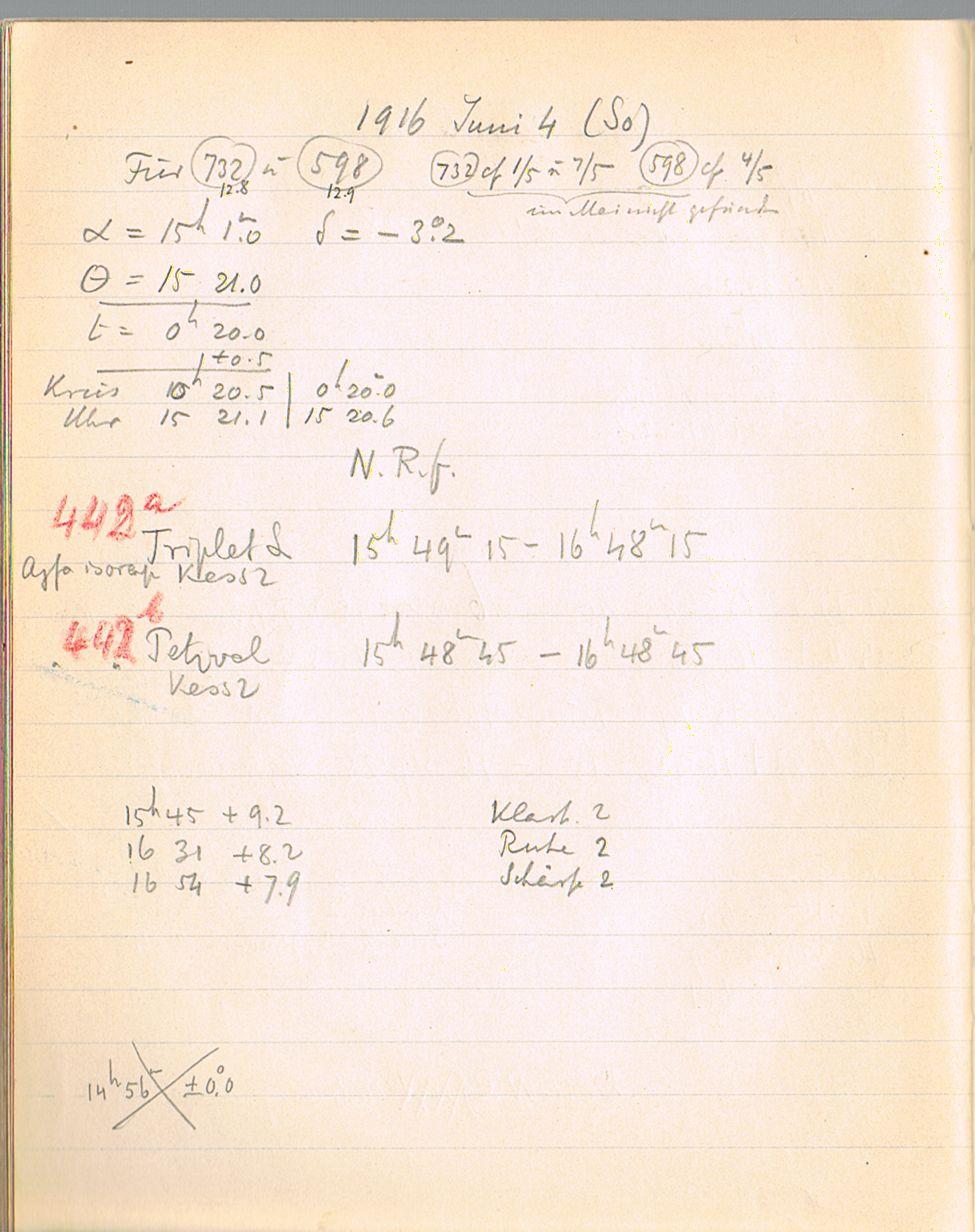 1916 Juni 4 (So)
Für 732 u 598 732 cf 1/5 u 7/5 598 cf 4/5
12.8 12.9 im Mai nicht gefunden
α = 15h 1m.0 δ = - 3°.2
Θ = 15 21.0
t = 0h 20.0
+0.5
Kreis 0h 20.5 | 0h 20m.0
Uhr 15 21.1 | 15 20.6
N. R. f.
442a
Triplet L 15h 49m 15 - 16h 48m 15
Agfa isorap Kess 2
442b
Petzval 15h 48m 45 - 16h 48m 45
" " Kess 2
15h 45 + 9.2 Klarh. 2
16 31 + 8.2 Ruhe 2
16 54 + 7.9 Schärfe 2
14h 56m ± 0°.0